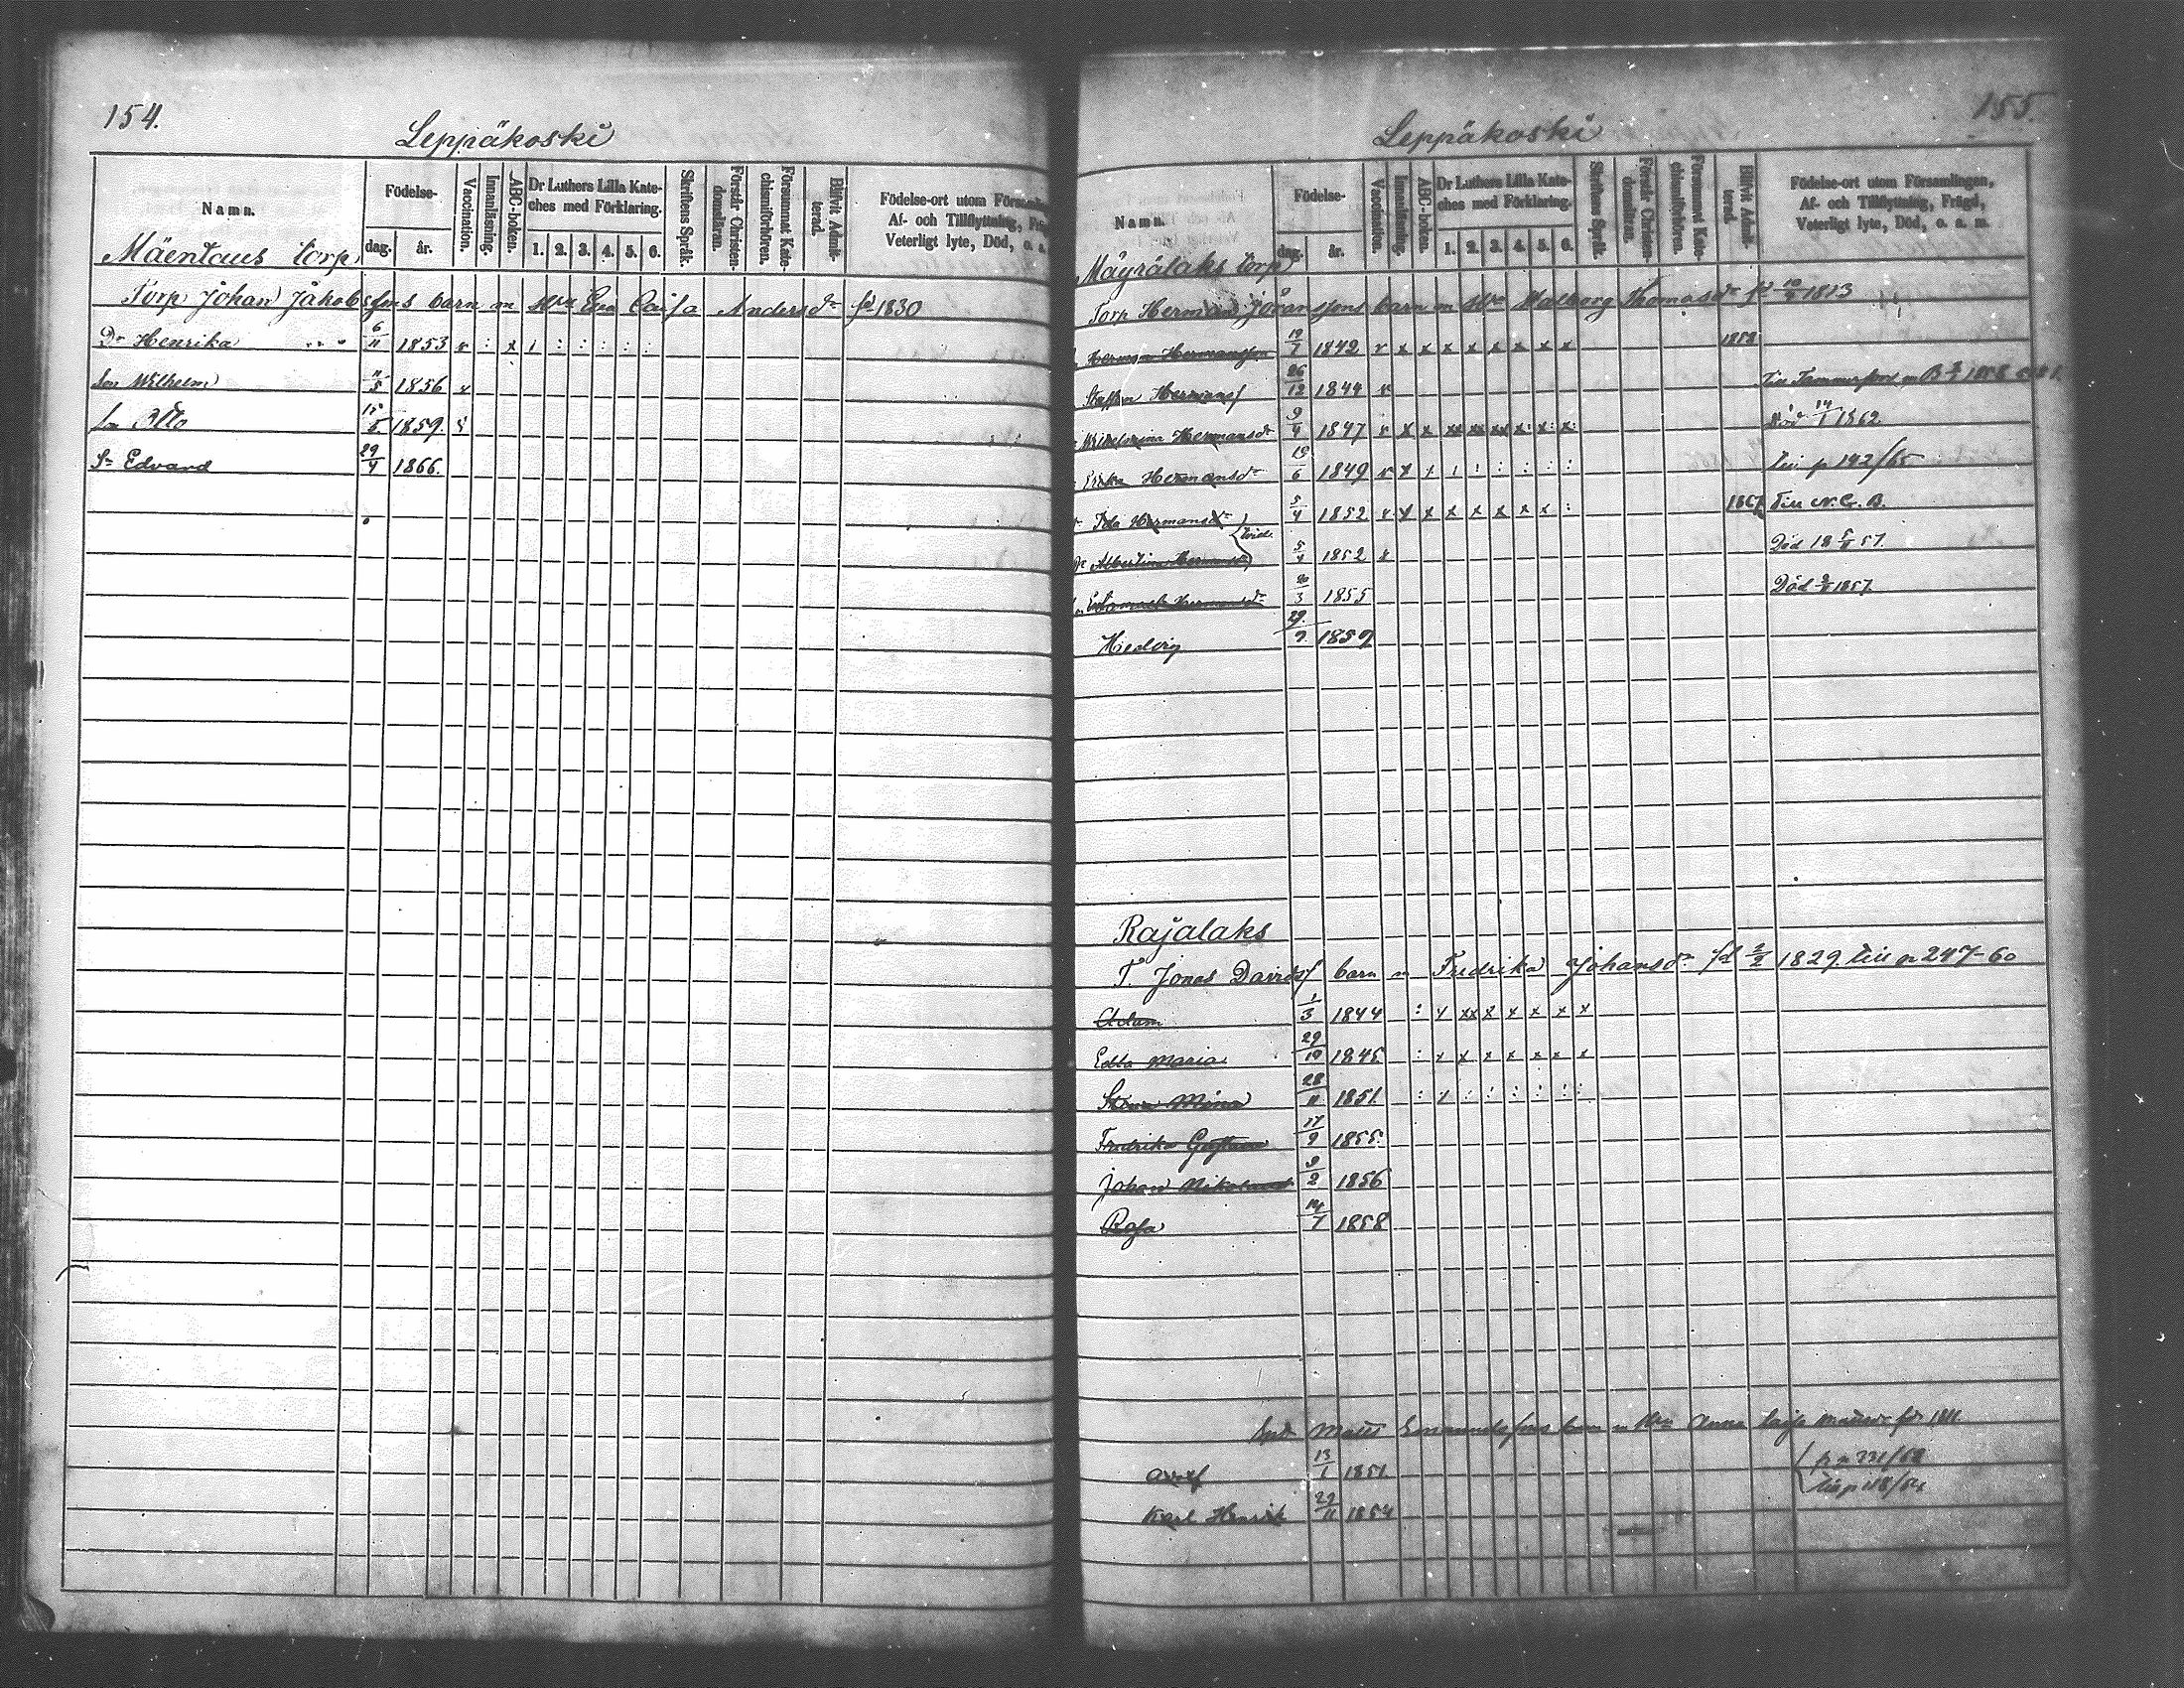 154.
Leppäkoski
Namn.
Födelse-
dag.
år.
Vaccination.
Innanläsning.
ABC-boken.
Dr Luthers Lilla Kate-
ches med Förklaring.
1. 2. 3. 4. 5. 6.
Skriftens Språk.
Förstår Christen-
domsläran.
Försummat Kate-
chismiförhören.
Blifvit Admit-
terad.
Födelse-ort utom
Af- och Tillflyttning,
Veterligt lyte, Död, o. a.
Mäentaus torp
Torp Johan Jakobssons barn m Eva Caisa Andersdr fd 1830
Dr Henrika 6/11 1853 v : x 1 : : : : :
Son Wilhelm 1856 v
Son Otto 1859.
Sn Edvard 29/4 1866.
155.
Leppäkoski
Namn.
Födelse-
dag.
år.
Vaccination.
Innanläsning.
ABC-boken.
Dr Luthers Lilla Kate-
ches med Förklaring.
1. 2. 3. 4. 5. 6.
Skriftens Språk.
Förstår Christen-
domsläran.
Försummat Kate-
chismiförhören.
Blifvit Admit-
terad.
Födelse-ort utom Församlingen,
Af- och Tillflyttning, Frägd,
Veterligt lyte, Död, o. a. m.
Mäyrälaks torp
Torp Herman Göranssons barn m Walborg Thomasdr fd 1813
Herman Hermansson 19/7 1842 v x x x x x x x x 1858
Staffan Hermanss 26/12 1844 v Till Tammerfors
Wilhelmina Hermansdr 9/4 1847 v x x xx xx xx x x x Död 14/1 1862
Erika Hermansdr 19/6 1849 v x 1 1 : : : : : till p 142/65
Ida Hermansdr 5/4 1852 v x x x x x x x : 1867 Till N. Cr. B.
Albertina Hermansdr 5/4 1852 x Död 18 57.
Hermansdr 20/3 1855 Död 1857.
Hedvig 29/9 1859
Rajalaks
T. Jonas Davidss barn m Fredrika Johansdr fd 2/2 1829. till p 247-60
Adam 1/3 1844 : x xx x x x x x
Edla Maria 29/10 1845 : x x x x x x x
Stina Mina 28/11 1851 : 1 : : : : : :
Fredrika Gustava 17/9 1855.
Johan 9/2 1856
Rosa 14/7 1858
Matts Emanuelssons barn m Anna Caisa fdr 1811.
Adolf 13/1 1851
Karl Henrik 22/11 1854